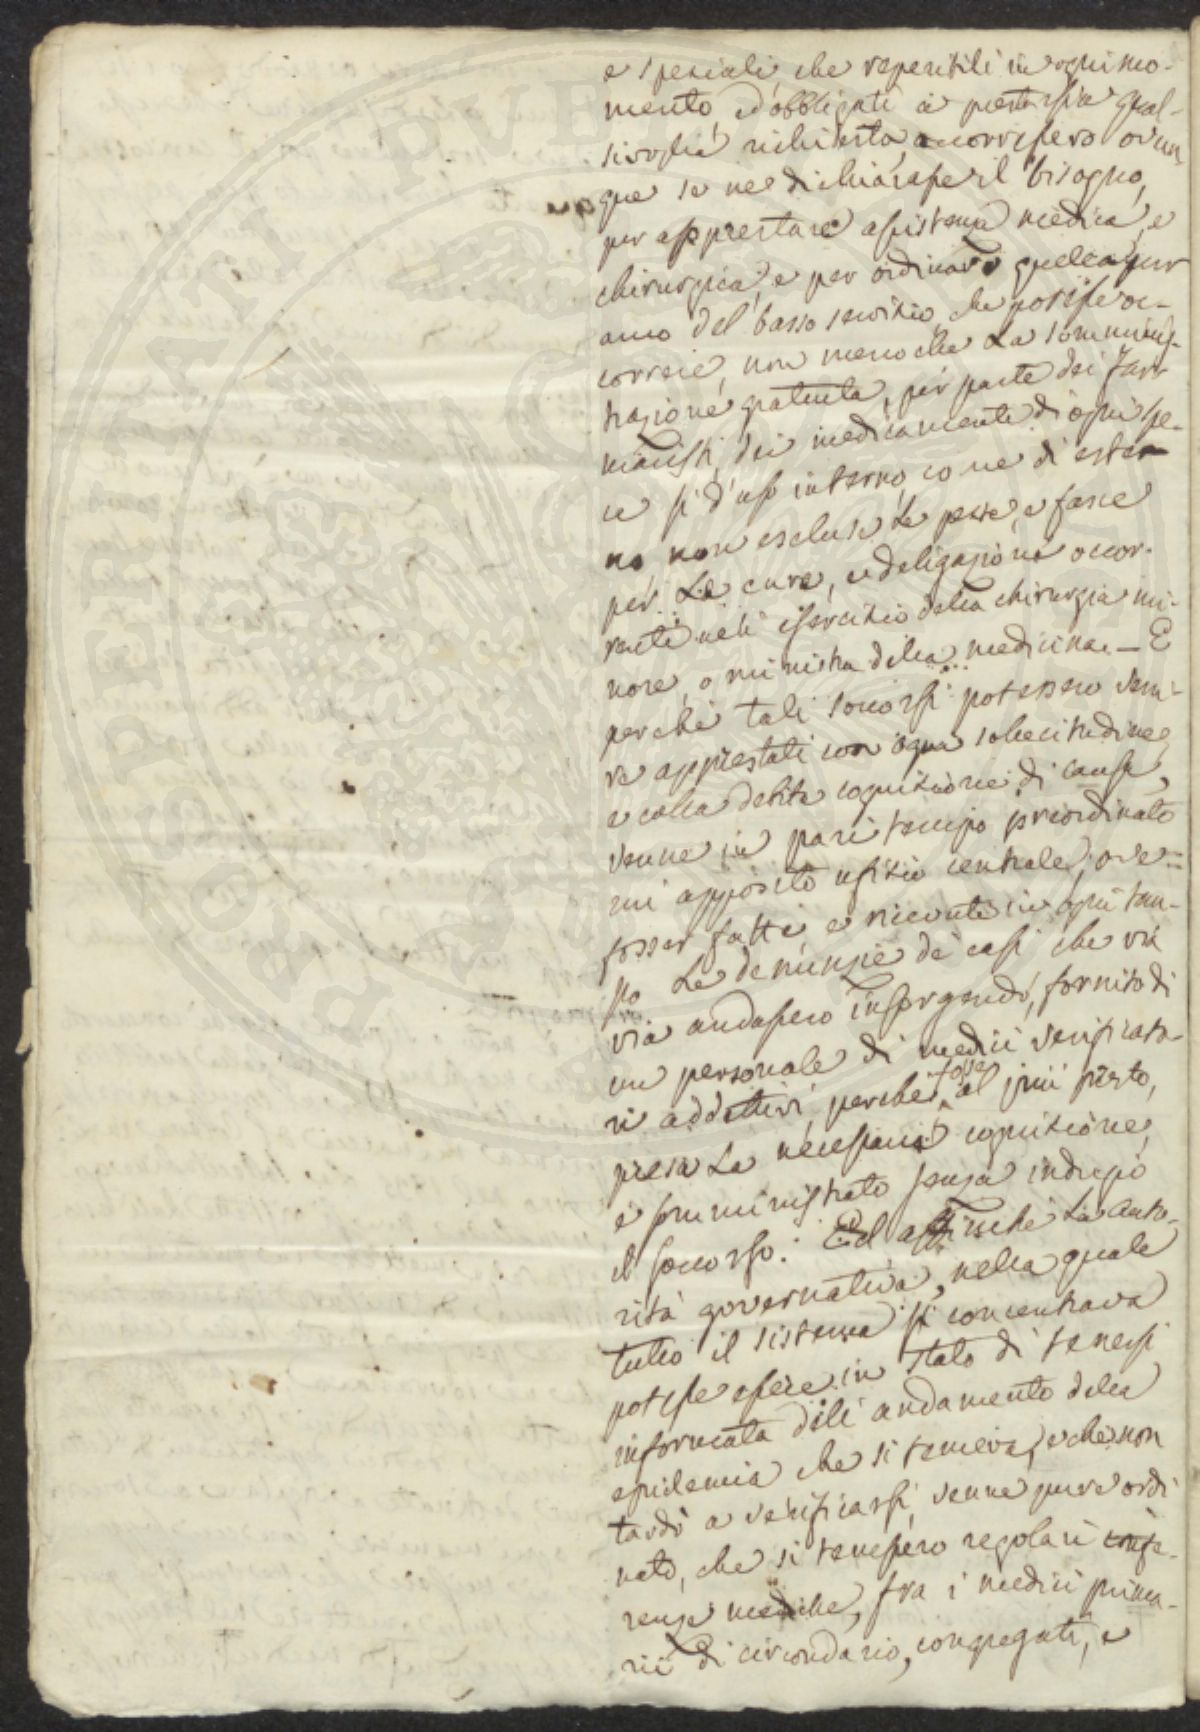 e speziali, che reperibili in ogni mo-
mento, ed obbligati a prestarsi a qual-
sivoglia richiesta accorressero ovun
que se ne dichiarasse il bisogno,
per apprestare assistenza medica, e
chirurgica, e per ordinare quella pur
anco del basso servitio che potesse oc-
correre, non meno che la somminis-
trazione gratuita, per parte dei Far
macisti, dei medicamenti di ogni spe-
cie sì d'uso interno, come di ester
no non escluse le pezze, e fasce
per le cure, e deligazione occor-
renti nell'esercitio della chirurgia mi-
nore, o ministra della medicina. — E
perchè tali soccorsi potessero veni-
re apprestati con ogni sollecitudine,
e colla debita cognitione di causa,
venne in pari tempo preordinato
un apposito ufitio centrale, ove
fosser fatte, e ricevute in ogni tem-
po le denunzie de' casi che via
via andassero insorgendo, fornito di
un personale di medici verificato-
ri addettivi, perchè fosse al più presto,
presa la necessaria cognitione,
e somministrato senza indugio
il soccorso. Ed affinchè la auto-
rità governativa, nella quale
tutto il sistema si concentrava
potesse essere in stato di tenersi
informata dell'andamento della
epidemia che si temeva, e che non
tardò a verificarsi, venne pure ordi
nato, che si tenessero regolari confe-
renze mediche, fra i medici prima-
rii di circondario, congregati, e